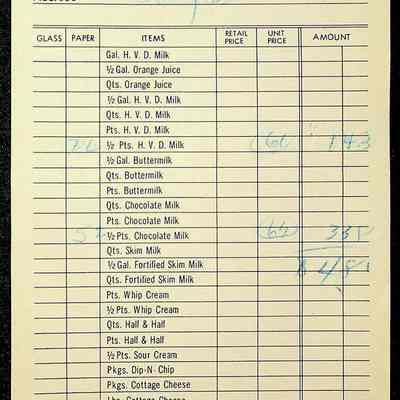 GLASS PAPER ITEMS RETAIL PRICE UNIT PRICE AMOUNT
Gal. H. V. D. Milk
½ Gal. Orange Juice
Qts. Orange Juice
½ Gal. H. V. D. Milk
Qts. H. V. D. Milk
Pts. H. V. D. Milk
½ Pts. H. V. D. Milk
½ Gal. Buttermilk
Qts. Buttermilk
Pts. Buttermilk
Qts. Chocolate Milk
Pts. Chocolate Milk
½ Pts. Chocolate Milk
Qts. Skim Milk
½ Gal. Fortified Skim Milk
Qts. Fortified Skim Milk
Pts. Whip Cream
½ Pts. Whip Cream
Qts. Half & Half
Pts. Half & Half
½ Pts. Sour Cream
Pkgs. Dip-N-Chip
Pkgs. Cottage Cheese